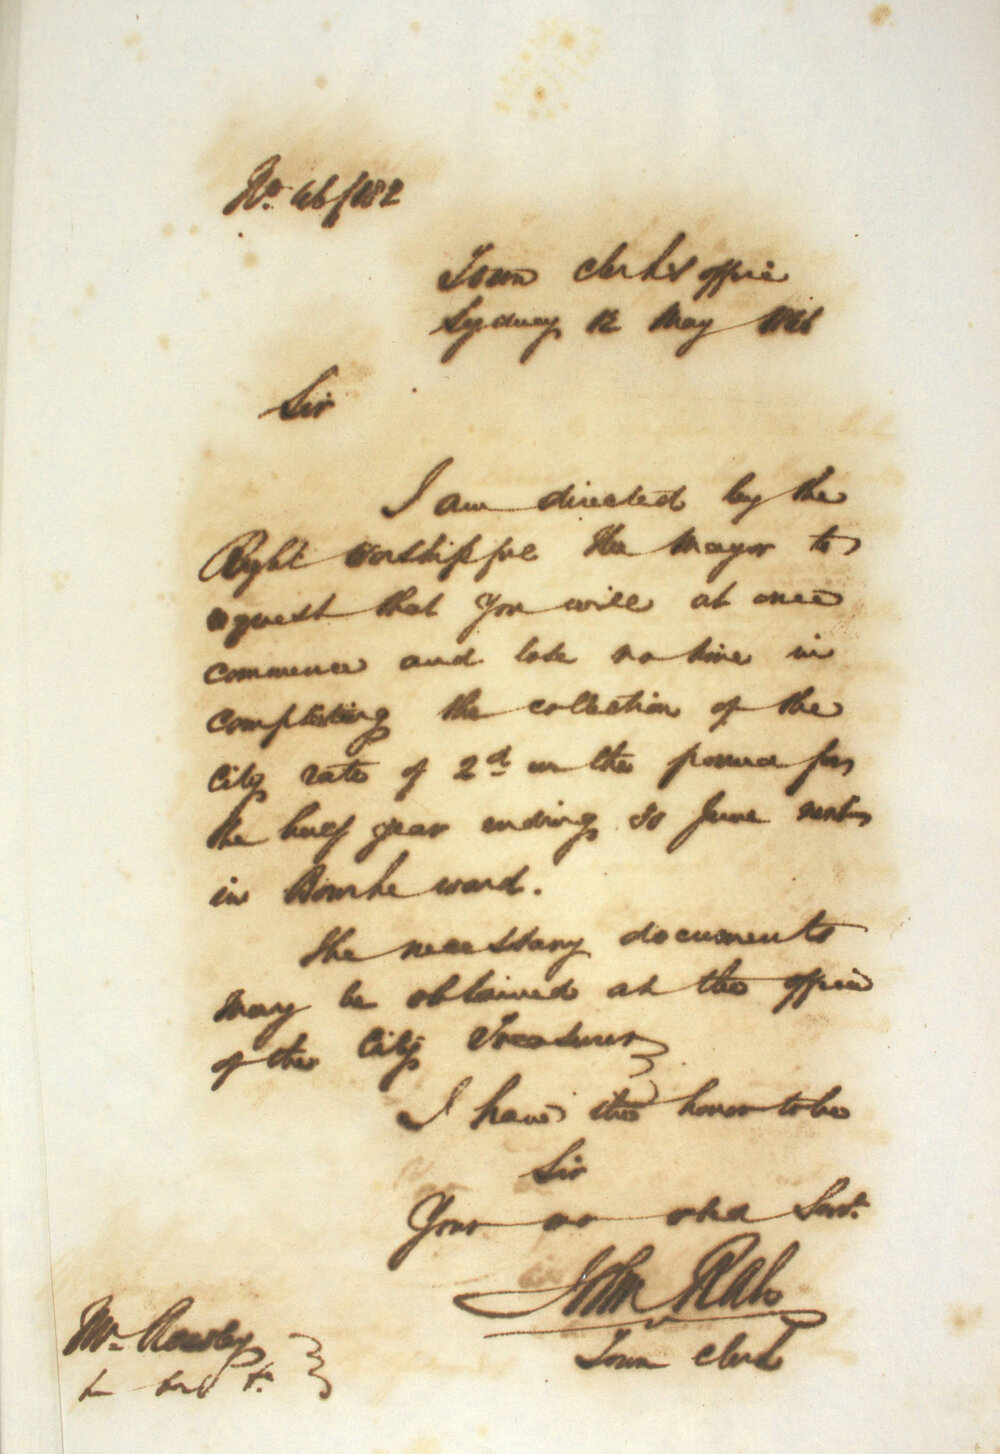 No. 46/182
Town Clerk's Office
Sydney 12 May 1846
Sir
I am directed by the
Right Worshipful the Mayor to
request that you will at once
commence and lose no time in
completing the collection of the
City rate of 2d in the pound for
the half year ending 30 June next
in Bourke ward.
The necessary documents
may be obtained at the office
of the City Treasurer
I have the honor to be
Sir
Your mo obed Servt.
John Rae
Town Clerk
Mr.